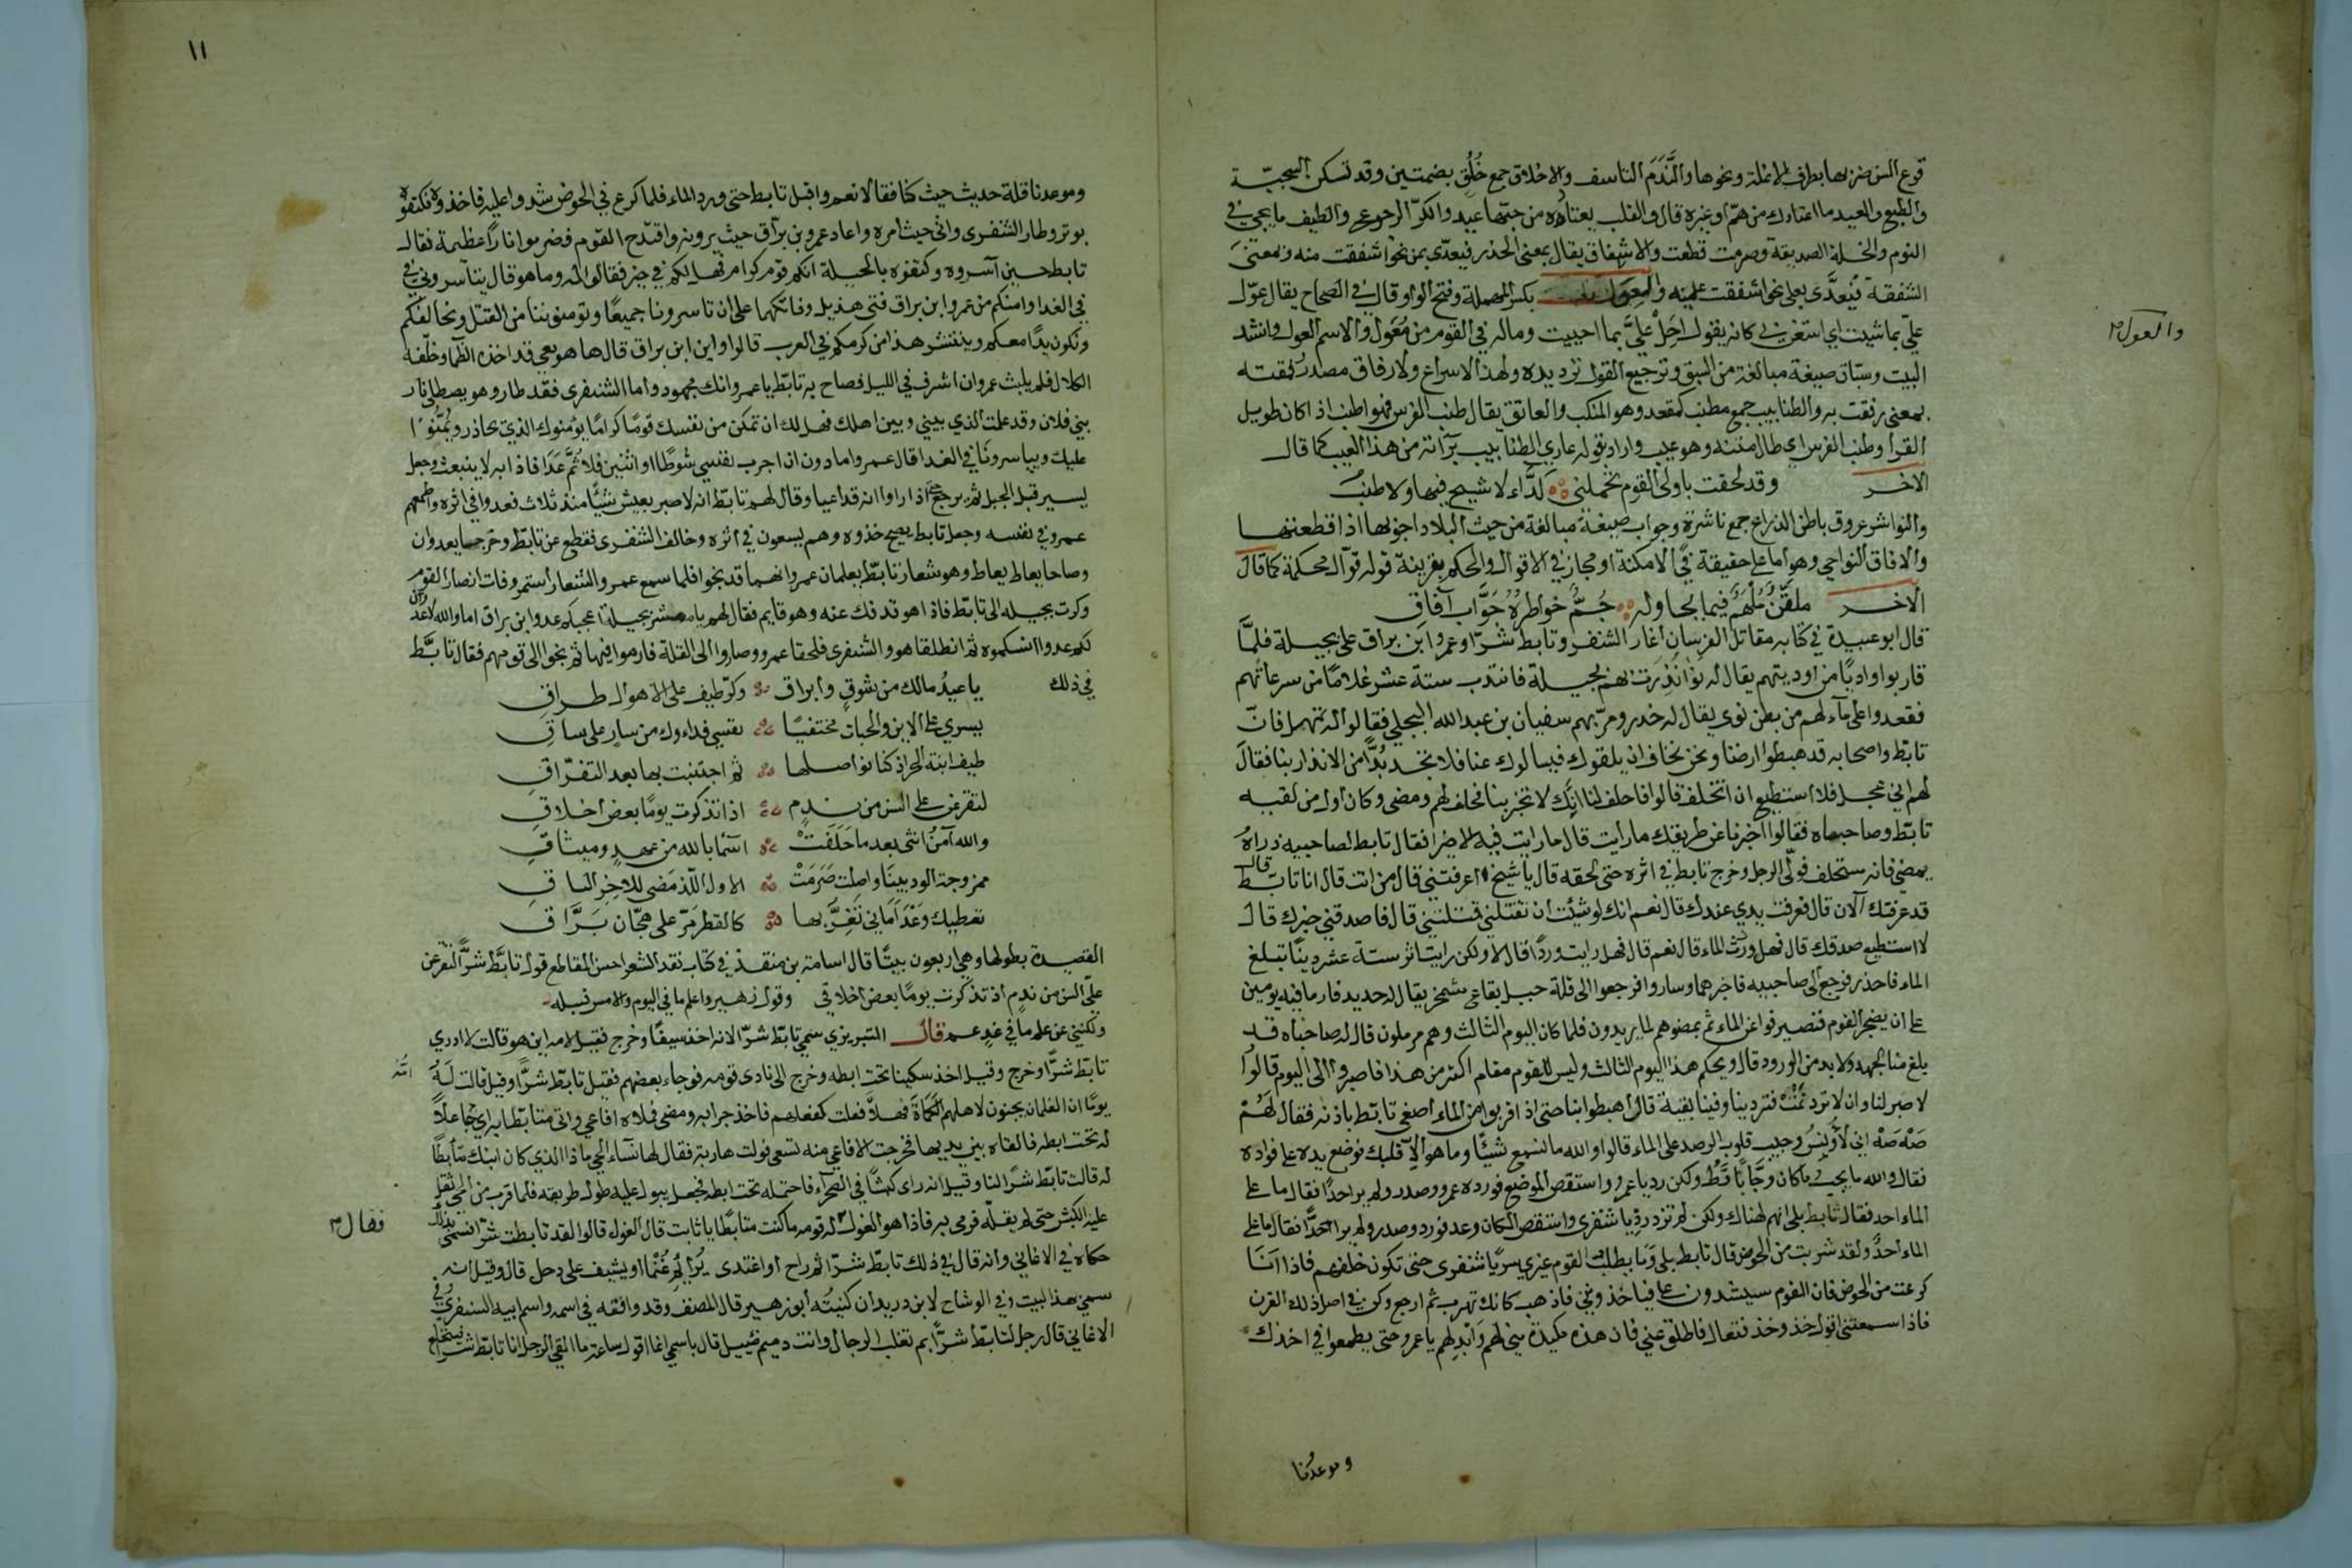 قرع السن ضربها بطرف الانملة ونحوها والنَّدَم التاسف والاخلاق جمع خُلُق بضمتين وقد تسكن السجيّة
والطبع والعيد ما اعتادك من همّ او غيره قال والقلب يعتاده من حبّها عيد والكرّ الرجوع والطيف ما يجيء في
النوم والخلة الصديقة وصرمت قطعت والاشفاق يقال بمعنى الحذر فيعدّى بمن نحو اشفقت منه وبمعنى
الشفقة فيُعدَّى بعلى نحو اشفقت عليه والمِعوَل بكسر المهملة وفتح الواو وقال في الصحاح يقال عوّل
والعول
عليّ بما شيت اي استعن بي كانه يقول احمل عليَّ بما احببت وماله في القوم من مُعَوّل والاسم العول وانشد
البيت وسبّاق صيغة مبالغة من السبق وترجيع القول ترديده ولهذا الاسراع والارفاق مصدر
بمعنى رفقت به والطنابيب جمع مطنب كمقعد وهو المنكب والعاتق يقال طنب الفرس فهو اطنب اذا كان طويل
القرا وطنب الفرس اي طال متنه وهو عيب واراد بقوله عاري الطنابيب برآته من هذا العيب كما قال
الاخر وقد لحقت باولى القوم تحملني كَدَّاء لا شيح فيها ولا طنبُ
والنواشر عروق باطن الذراع جمع ناشرة وجواب صيغة مبالغة من حيث البلاد اجوبها اذا قطعتها
والافاق النواحي وهو اما على حقيقة في الامكنة او مجاز في الاقوال والحكم بقرينة قوله قوّال محكمة كما قال
الاخر ملقّنٌ مُلهَمٌ فيما يحاوله جُمٌّ خواطرهُ جَوّاب آفاق
قال ابو عبيدة في كتابه مقاتل الفرسان اغار الشنفرى وتابط شرّا وعمرو ابن براق على بجيلة فلمّا
قاربوا واديا من اوديتهم يقال له نوا نذرت بهم بجيلة فانتدب ستة عشر غلاما من سرعاتهم
فقعدوا على مآء لهم من بطن نوى يقال له خدر ومرّ بهم سفيان بن عبد الله البجلي فقالوا له تمهل فانّ
تابّط واصحابه قد هبطوا ارضنا ونحن نخاف ان يلقوك فيسالوك عنا فلا تجد بُدًّا من الانذار بنا فقال
لهم اني عجل فلا استطيع ان اتخلف قالوا فاحلف لنا انك لا تخبر بنا فحلف لهم ومضى وكان اول من لقيه
تابّط وصاحباه فقالوا اخبرنا عن طريقك ما رأيت قال ما رايت فيه الا خيرا فقال تابط لصاحبيه ذراهُ
يمضي فانه ستحلف فولّى الرجل وخرج تابط في اثره حتى لحقه قال يا شيخ اعرفتني قال من انت قال انا تابّط قال
قد عرفتك الآن قال فعرفت يدي عندك قال نعم انك لو شئت ان تقتلني قتلتني قال فاصدقني خبرك قال
لا استطيع صدقك قال فهل وردت الماء قال نعم قال فهل رايت وردا قال لا ولكن رايت اثر ستة عشر دينا تبلغ
الماء فاحذر فرجع الى صاحبيه فاخبرهما وساروا فرجعوا الى قلة جبل بقاع مشمخر يقال له حديد فارما فيه يومين
على ان يضجر القوم فنصبروا عن الماء ثم يمضوهم لما يريدون فلما كان اليوم الثالث وهم مرملون قال له صاحباه قد
بلغ منا الجهد ولا بد من الورود قال ويحكم هذا اليوم الثالث وليس للقوم مقام اكثر من هذا فاصبروا الى اليوم قالوا
لا صبر لنا وان لا ترد تَمُتْ فترد بنا وفينا بقية قال اهبطوا ابنا حتى اذا قربوا من الماء اصغى تابّط باذنه فقال لهمْ
صَهْ صَهْ اني لاونسُ وجيب قلوب الرصد على الماء قالوا والله ما نسمع شيئًا وما هو الا قلبك فوضع يده على فواده
فقال والله ما يجب ما كان وجّابًا قَطُّ ولكن رد يا عمرو واستنقض الموضع فورده عمرو وصدر ولم ير احدًا فقال ما على
الماء احد فقال تابط بلى انهم لهناك ولكن لم تزد رد يا شنفرى واستنقض المكان وعد فورد وصدر ولم ير احدًا فقال ما على
الماء احدٌ ولقد شربت من الحوض قال تابط بلى وما يطلب القوم غيري سر يا شنفرى حتى تكون خلفهم فاذا اَنَا
كرعت من الحوض فان القوم سيشدون علي فياخذوني فاذهب كانك تهرب ثم ارجع وكن في اصل ذلك القرن
فاذا سمعتني اقول خذ وخذ فتعال فاطلق عني فان هذه مكيدة بني لهم وَابْدِلهم يا عمرو حتى يطمعوا في اخذك
وموعدُنا
١١
وموعدنا قلة حديث حيث كنا فقالا نعم واقبل تابط حتى ورد الماء فلما كرع في الحوض شدوا عليه فاخذوه فكتفوه
بوتر وطار الشنفرى واتى حيث امره واعاد عمرو بن برآق حيث يرونه واقتدح القوم فضرموا نارًا عظيمة فقال
تابط حين آسروه وكتفوه يا لبجيلة انكم قوم كرام فهل لكم في خير فقالوا له وما هو قال بتنا سروني في
في الغدا وامنكم من عمرو ابن براق فتى هذيل وفاتكها على ان تاسرونا جميعًا وتومنوننا من القتل ونحالفكم
ونكون يدًا معكم وينتشر هذا من كرمكم في العرب قالوا واين ابن براق قال ها هو معي قد اخذه الظّما وخلّفه
الكلال فلم يلبث عمرو ان اشرف في الليل فصاح به تابّط يا عمرو انك مجهود واما الشنفرى فقد طار وهو يصطلي نار
بني فلان وقد علمت الذي بيني وبين اهلك فهل لك ان تمكن من نفسك قومًا كرامًا يؤمنوك الذي تحاذر ويمنُّوا
عليك وبياسرونا في الغدا قال عمرو اما دون ان اجرب نفسي شوطًا او اثنين فلا ثُمَّ عَدَا فاذا به لا ينبعث وجعل
يسير قبل الجبل ثم يرجع حتى اذا راوا انه قد اعيا وقال لهم تابّط انه لا صبر بعيش شيئًا منذ ثلاث فعدوا في اثره واطمعهم
عمرو في نفسه وجعل تابط يصيح خذوه وهم يسعون في اثره وخالف الشنفرى فقطع عن تابّط وخرجا يعدوان
وصاحا يعاط يعاط وهو شعار تابّط يعلمان عمرو انهما قد نجوا فلما سمع عمرو الشعار استمر وفات ابصار القوم
وكرت بجيله الى تابّط فاذا هو قد فك عنه وهو قايم فقال لهم يا معشر بجيلة اعجبكم عدو ابن براق اما والله لاعدون
لكم عدوا انسكموه ثم انطلقا هو والشنفرى فلحقا عمرو وصاروا الى القلة فارموا فيها ثم نجوا الى قومهم فقال تابَّط
في ذلك يا عيدُ مالك من شوقٍ وأبراق وكرّ طيف على الاهوال طراقِ
يسري على الاين والحيات مختفيًا نفسي فداوك من سارٍ على ساقِ
طيف ابنة الحر اذ كنا نواصلها ثم اجتنبت بها بعد التفرّاقِ
لتقرعن على السن من ندمٍ اذا تذكرت يومًا بعض اخلاقي
والله آمنُ انثى بعد ما حَلَفَتْ اسما بالله من عهدٍ وميثاقِ
ممزوجة الود بينا واصلت صَرَمَتْ الاول اللذ مضى للاخِر الباقي
تعطيك وَعْدَ أمَاني تَغِرَّ بها كالقطر مَرّ على هجّان بَرَّاقِ
القصيدة بطولها وهي اربعون بيتًا قال اسامة بن منقذ في كتاب نقد الشعر احسن المقاطع قول تابَّط شرًّا لتقرعن
عليّ السن من ندم اذ تذكرت يومًا بعض اخلاقي وقول زهير واعلم ما في اليوم والامس قبله
ولكنني عن علم ما في غدٍ عمِ قال التبريزي سمي تابّط شرّا لانه اخذ سيفًا وخرج فقيل لامه اين هو قالت لا ادري
تابّط شرًّا وخرج وقيل اخذ سكينا تحت ابطه وخرج الى نادى قومه فوجاء بعضهم فقيل تابّط شرًّا وقيل قالت لَهُ
امّه
يومًا ان الغلمان يجنون لاهلهم الكماةَ فهلاَّ فعلت كفعلهم فاخذ جرابه ومضى فملاه افاعي واتى متابّطا به اي جاعلًا
له تحت ابطه فالقاه بين يديها فخرجت الافاعي منه تسعى فولت هاربة فقال لها نساء الحي ما ذا الذي كان ابنك متأبطًا
له قالت تابّط شرًا لنا وقيل انه راى كبشًا في الصحراء فاحتمله تحت ابطه فجعل يبول عليه طول طريقه فلما قرب من الحي ثقل
عليه الكبش حتى لم يقلّه فرمى به فاذا هو الغول له قومه ما كنت متابطًا يا ثابت قال الغول قالوا لقد تابطت شرًّا فسمي بذلك
فقال
حكاه في الاغاني وانه قال في ذلك تابّط شرّا ثم راح او اغتدى يُوائم غُنْما او يشيف على ذحل قال وقيل انه
سمي بهذا البيت وفي الوشاح لابن دريد ان كنيتُه أبو زهير قال المصنف وقد وافقه في اسمه واسم ابيه الشنفرى وفي
الاغاني قال رجل لتابّط شرًّا بم تغلب الرجال وانت دميم ضئيل قال باسمي انما اقول ساعة ما القى الرجل انا تابّط شرًّا فينخلع